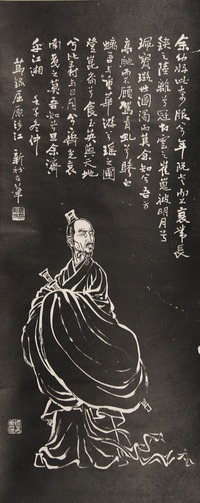 余幼好此奇服兮年既老而不衰帶長
鋏之陸離兮冠切雲之崔嵬被明月兮
珮寶璐世溷濁而莫余知兮吾方
高馳而不顧駕青虬兮驂白
螭吾與重華遊兮瑤之圃
登崑崙兮食玉英與天地
兮比壽與日月兮齊光哀
南夷之莫吾知兮旦余濟
乎江湘
屈原涉江